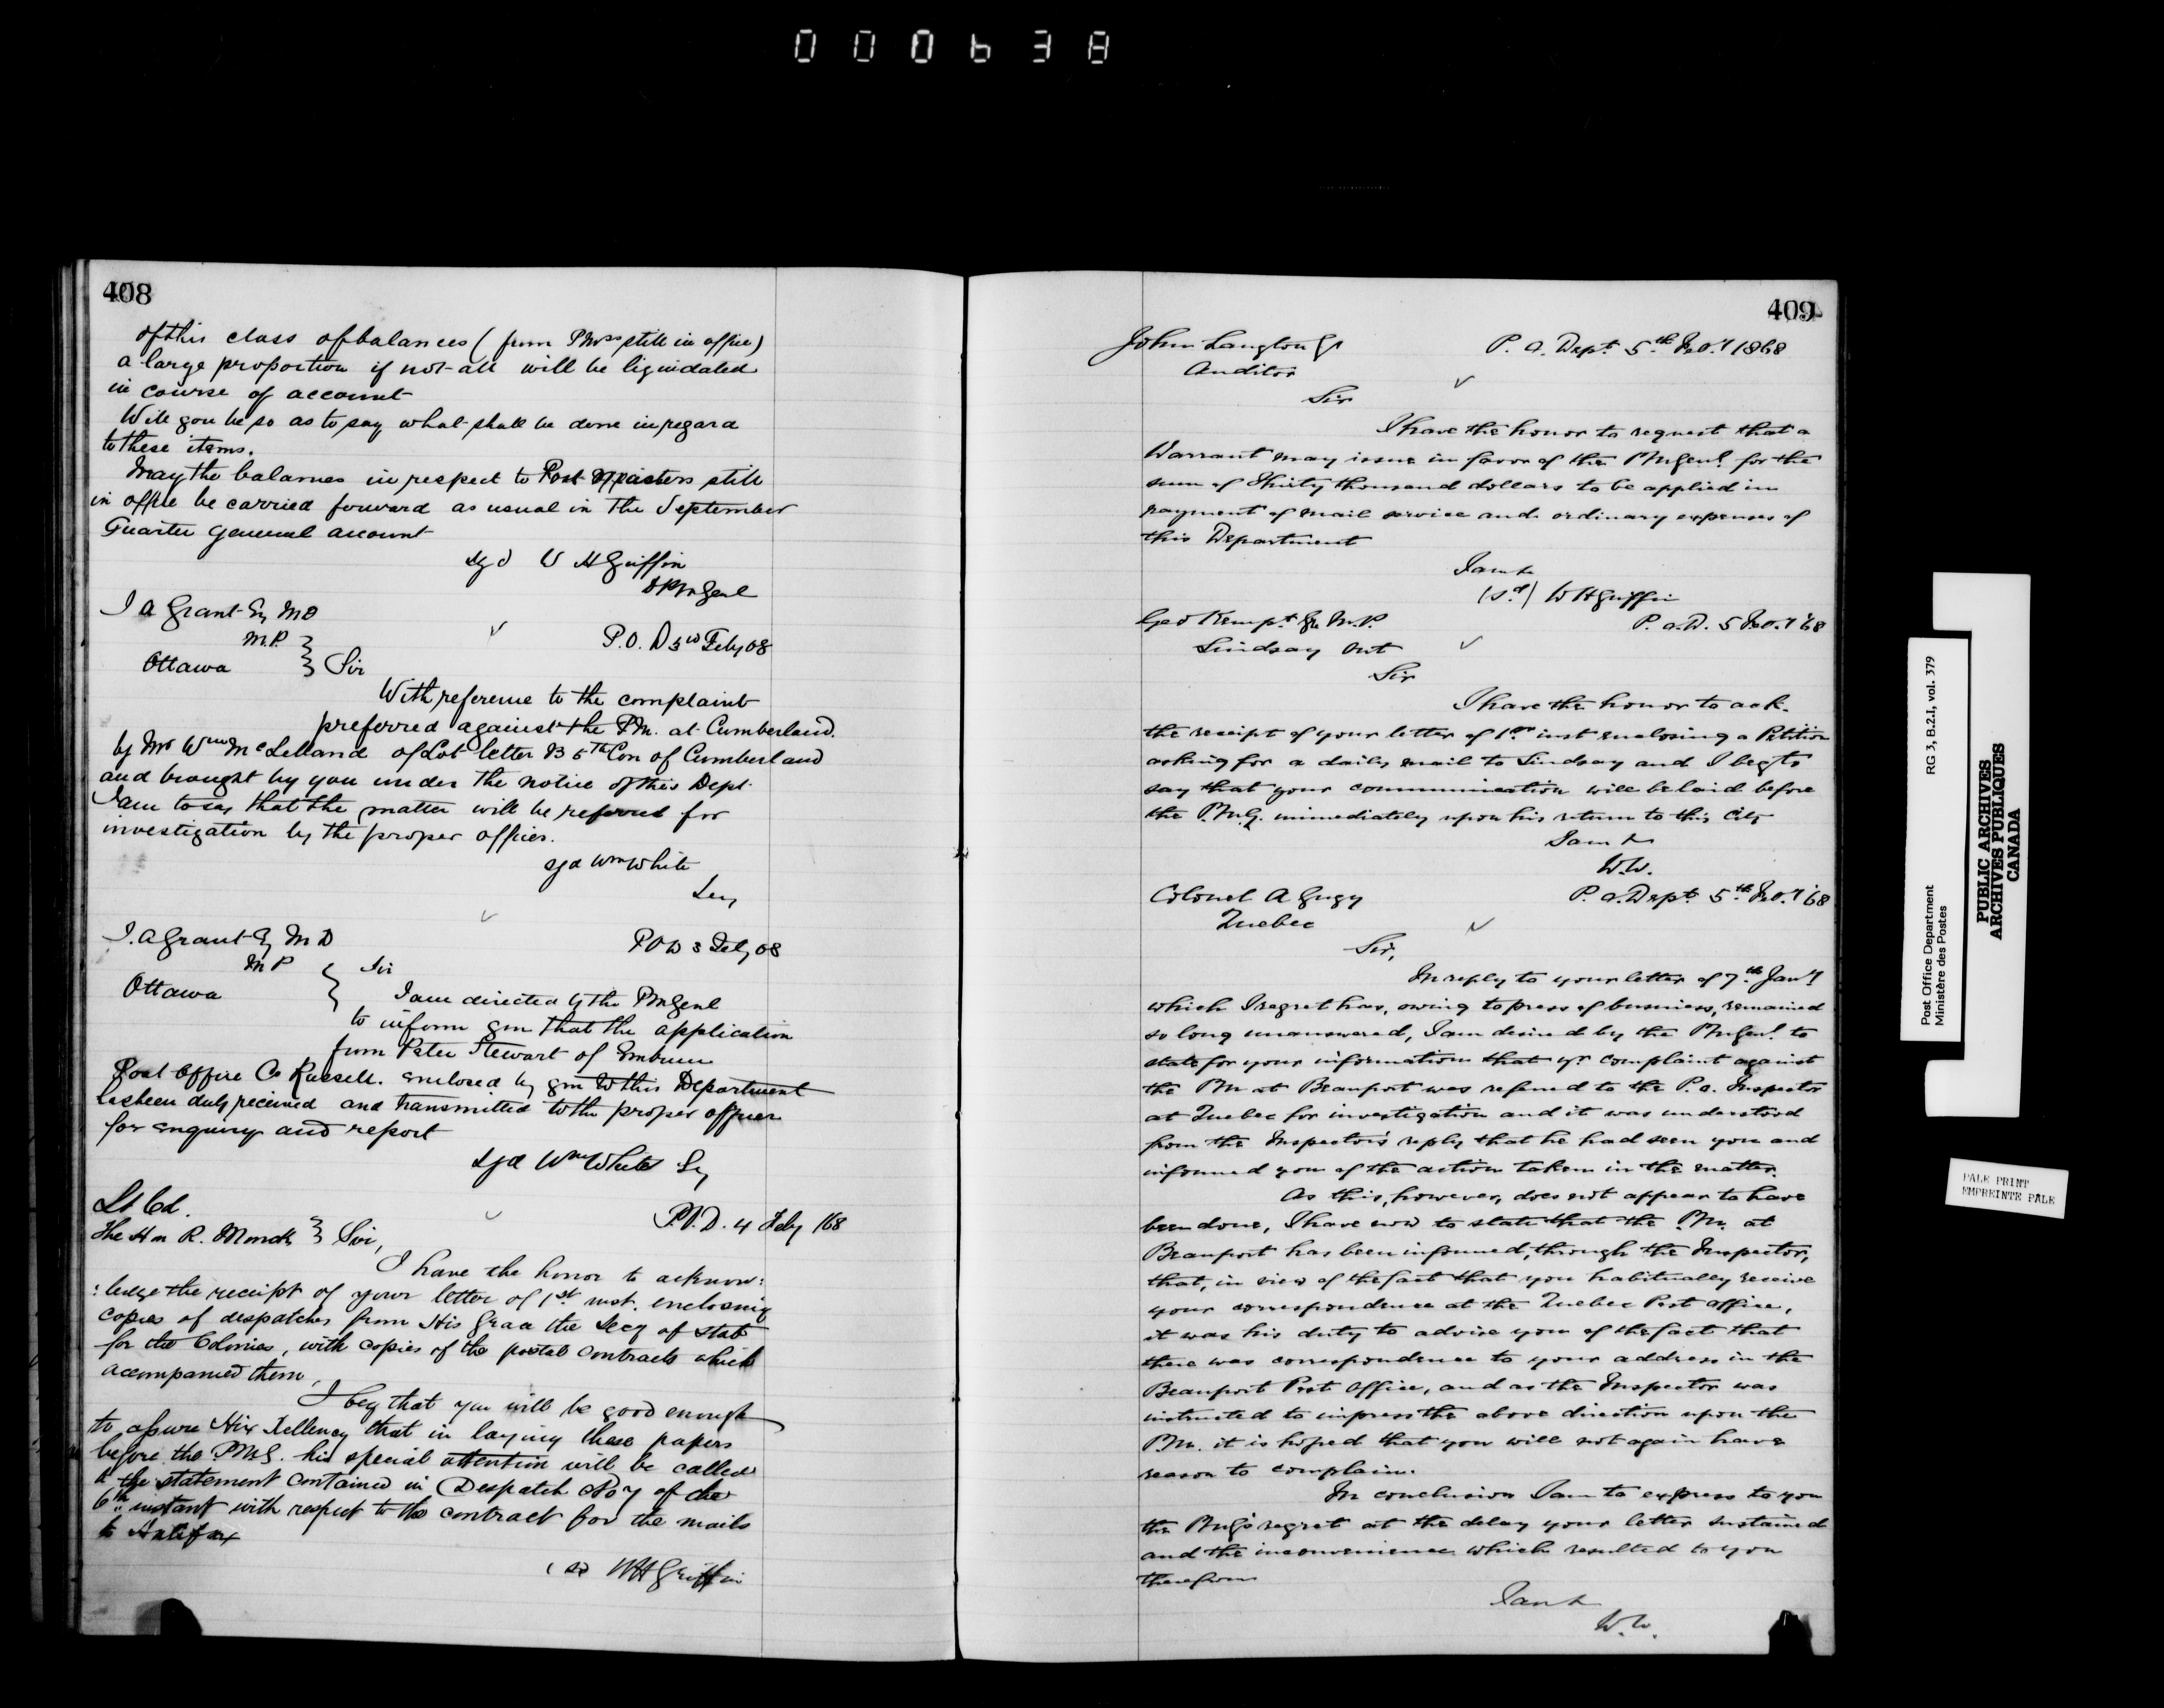 000638
408
of this class of balances (from PMrs still in office)
a large proportion if not all will be liquidated
in course of account
Will you be so as to say what shall be done in regard
to these items.
May the balances in respect to Post Masters still
in office be carried forward as usual in the September
Quarter general account
sgd W H Griffin
DPMGenl
J A Grant Esq MD
M.P.
Ottawa } Sir
P.O.D 3rd Feby 68
With reference to the complaint
preferred against the P.M. at Cumberland
by Mr Wm McLelland of Lot letter B 5th Con of Cumberland
and brought by you under the notice of this Dept.
I am to say that the matter will be referred for
investigation by the proper officer.
sgd Wm White
Secy
J. A Grant Esq M D
M P
Ottawa } Sir
POD 3 Feby 68
I am directed by the PMGenl
to inform you that the application
from Peter Stewart of Embrun
Post Office Co Russell. enclosed by you to this Department
has been duly received and transmitted to the proper officer
for enquiry and report
sgd Wm White Secy
Lt Col.
The Hon R. Monck } Sir,
P.O.D. 4 Feby /68
I have the honor to acknow:
:ledge the receipt of your letter of 1st inst. enclosing
copies of despatches from His Grace the Secy of State
for the Colonies, with copies of the postal contracts which
accompanied them.
I beg that you will be good enough
to assure His Xellency that in laying these papers
before the PMG. his special attention will be called
to the statement contained in Despatch No 7 of the
6th instant with respect to the contract for the mails
to Halifax
(sd) WH Griffin
409
John Langton Esqr
Auditor
P.O. Dept 5th Feby 1868
Sir
I have the honor to request that a
Warrant may issue in favor of the PMGenl for the
sum of Thirty thousand dollars to be applied in
payment of mail service and ordinary expenses of
this Department
I am &
(sd) W H Griffin
Geo Kempt Esq M.P.
Lindsay Ont
P.O.D. 5 Feby '68
Sir
I have the honor to ack.
the receipt of your letter of 1st inst enclosing a Petition
asking for a daily mail to Lindsay and I beg to
say that your communication will be laid before
the P.M.G. immediately upon his return to this City
I am &
W.W.
Colonel A Gugy
Quebec
P.O. Dept 5th Feby '68
Sir,
In reply to your letter of 7th Jany
which I regret has, owing to press of business, remained
so long unanswered, I am desired by the PMGenl to
state for your information that yr complaint against
the PM at Beauport was referred to the P.O. Inspector
at Quebec for investigation and it was understood
from the Inspector's reply that he had seen you and
informed you of the action taken in the matter
As this, however, does not appear to have
been done, I have now to state that the PM. at
Beauport has been informed, through the Inspector,
that, in view of the fact that you habitually receive
your correspondence at the Quebec Post Office,
it was his duty to advise you of the fact that
there was correspondence to your address in the
Beauport Post Office, and as the Inspector was
instructed to impress the above direction upon the
PM. it is hoped that you will not again have
reason to complain.
In conclusion I am to express to you
the PMG's regret at the delay your letter sustained
and the inconvenience which resulted to you
therefrom
I am &
W.W.
Post Office Department RG 3, B.2.I, vol. 379
Ministère des Postes
PUBLIC ARCHIVES
ARCHIVES PUBLIQUES
CANADA
PALE PRINT
EMPREINTE PALE